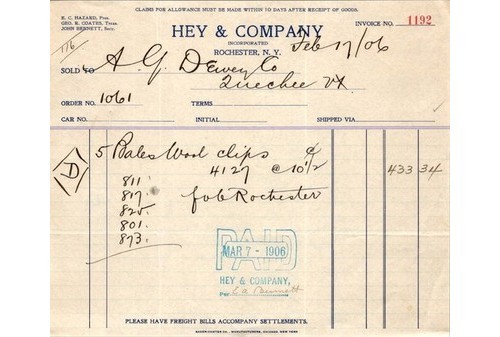 CLAIMS FOR ALLOWANCE MUST BE MADE WITHIN 10 DAYS AFTER RECEIPT OF GOODS.
E. C. HAZARD, Pres.
GEO. K. COATES, Treas.
JOHN BENNETT, Secy.
INVOICE NO. 1192
HEY & COMPANY
INCORPORATED
ROCHESTER, N. Y. Feb 17/06
116
SOLD TO A. G. Dewey Co
Quechee Vt
ORDER NO. 1061 TERMS
CAR NO. INITIAL SHIPPED VIA
5 Bales Wool clips
D 4127 @ 10 1/2 433 34
811
817 fob Rochester
825
801
873
PAID
MAR 7 - 1906
HEY & COMPANY,
Per
PLEASE HAVE FREIGHT BILLS ACCOMPANY SETTLEMENTS.